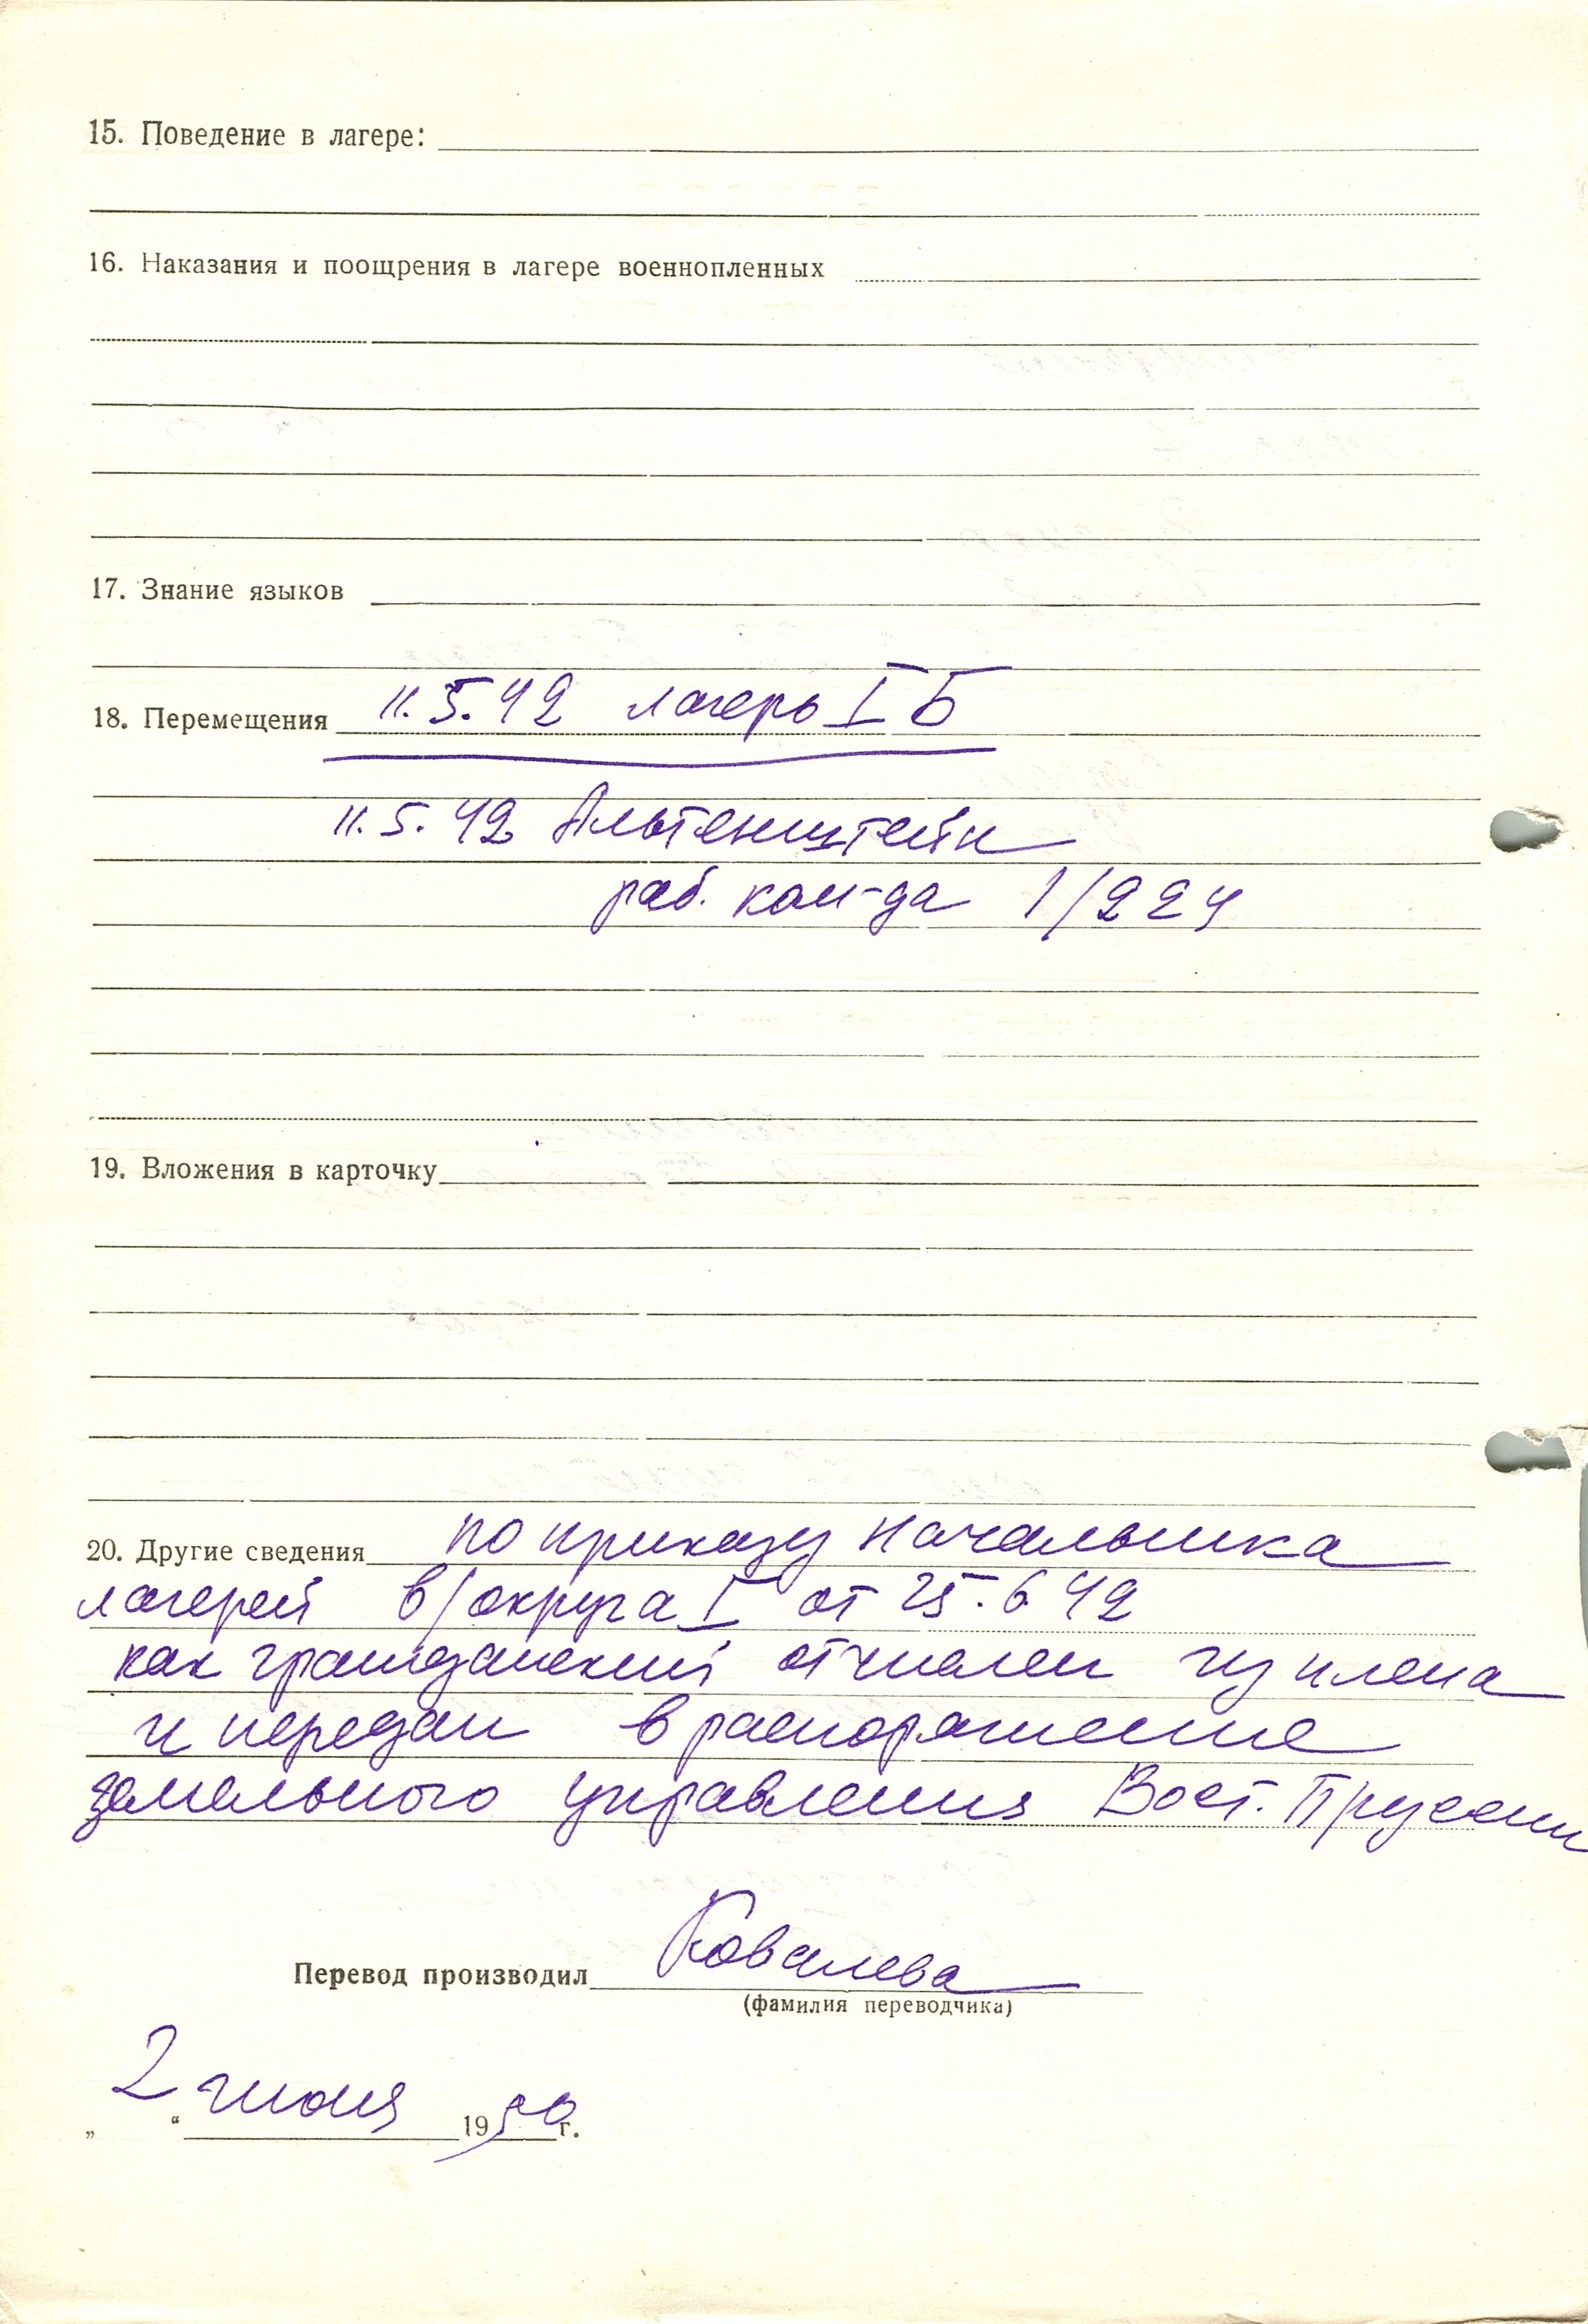 15. Поведение в лагере:
16. Наказания и поощрения в лагере военнопленных
17. Знание языков
18. Перемещения 11.5.42 лагерь I Б
11.5.42 Альтенштейн
раб. ком-да 1/224
19. Вложения в карточку
20. Другие сведения по приказу начальника
лагерей в/округа I от 25.6.42
как гражданский отчислен из плена
и передан в распоряжение
земельного управления Вост. Пруссии
Перевод производил Ковалева
(фамилия переводчика)
„2“ июня 1950 г.